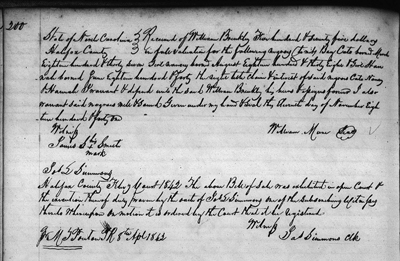 200
State of North Carolina } Received of William Brinkly Five hundred & Seventy five dollars
Halifax County } in full valuation for the following negroes (to wit) Boy Cato born March
Eighteen hundred & thirty seven Girl Nancy born August Eighteen hundred & thirty eight & Girl Han
nah born June Eighteen hundred & forty the right title claim & interest of said negroes Cato Nancy
& Hannah I Warrant & defend unto the said William Brinkly his heirs & assigns forever I also
warrant said negroes well & sound Given under my hand & seal the thirtieth day of November Eigh
teen hundred & forty one
Witness William Moore (Seal)
James his Smith
mark
Jas Simmons
Halifax County February Court 1842 The above Bill of Sale was exhibited in open Court &
the execution thereof duly proven by the oath of Jas Simmons one of the subscribing witnesses
thereto Whereupon on motion it is ordered by the Court that it be registered
Witness
Jas Simmons Clk
8th Apl 1842